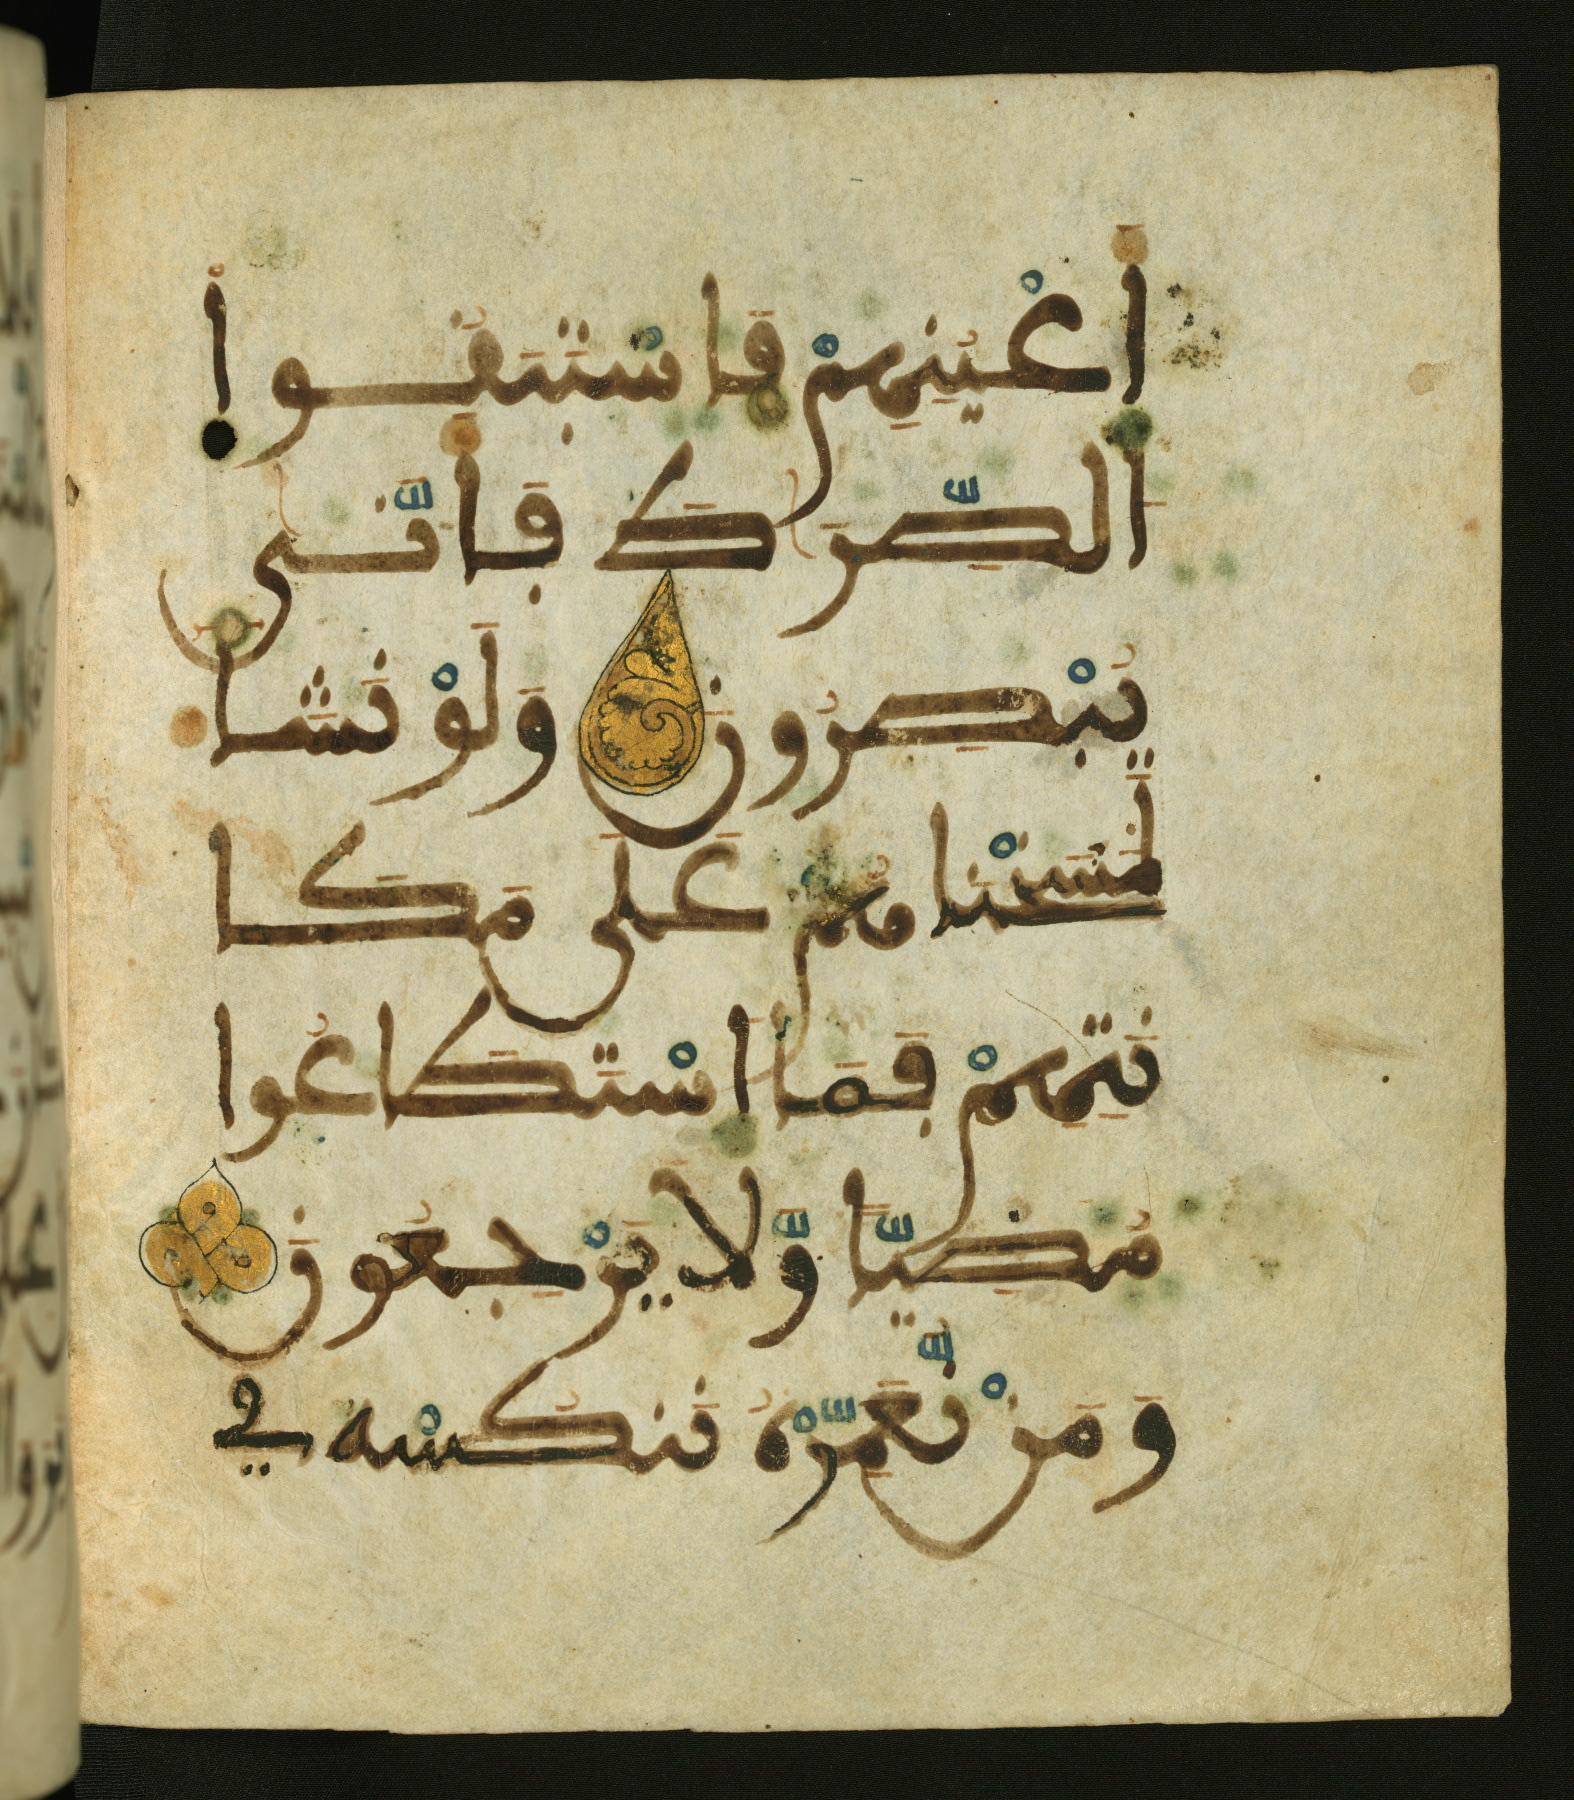 أَعْيُنِهِمْ فَاسْتَبَقُوا
الصِّرَٰطَ فَأَنَّىٰ
يُبْصِرُونَ وَلَوْ نَشَا
لَمَسَخْنَٰهُمْ عَلَىٰ مَكَا
نَتِهِمْ فَمَا اسْتَطَٰعُوا
مُضِيًّا وَّلَا يَرْجِعُونَ
وَمَن نُّعَمِّرْهُ نَنكُسْهُ فِي